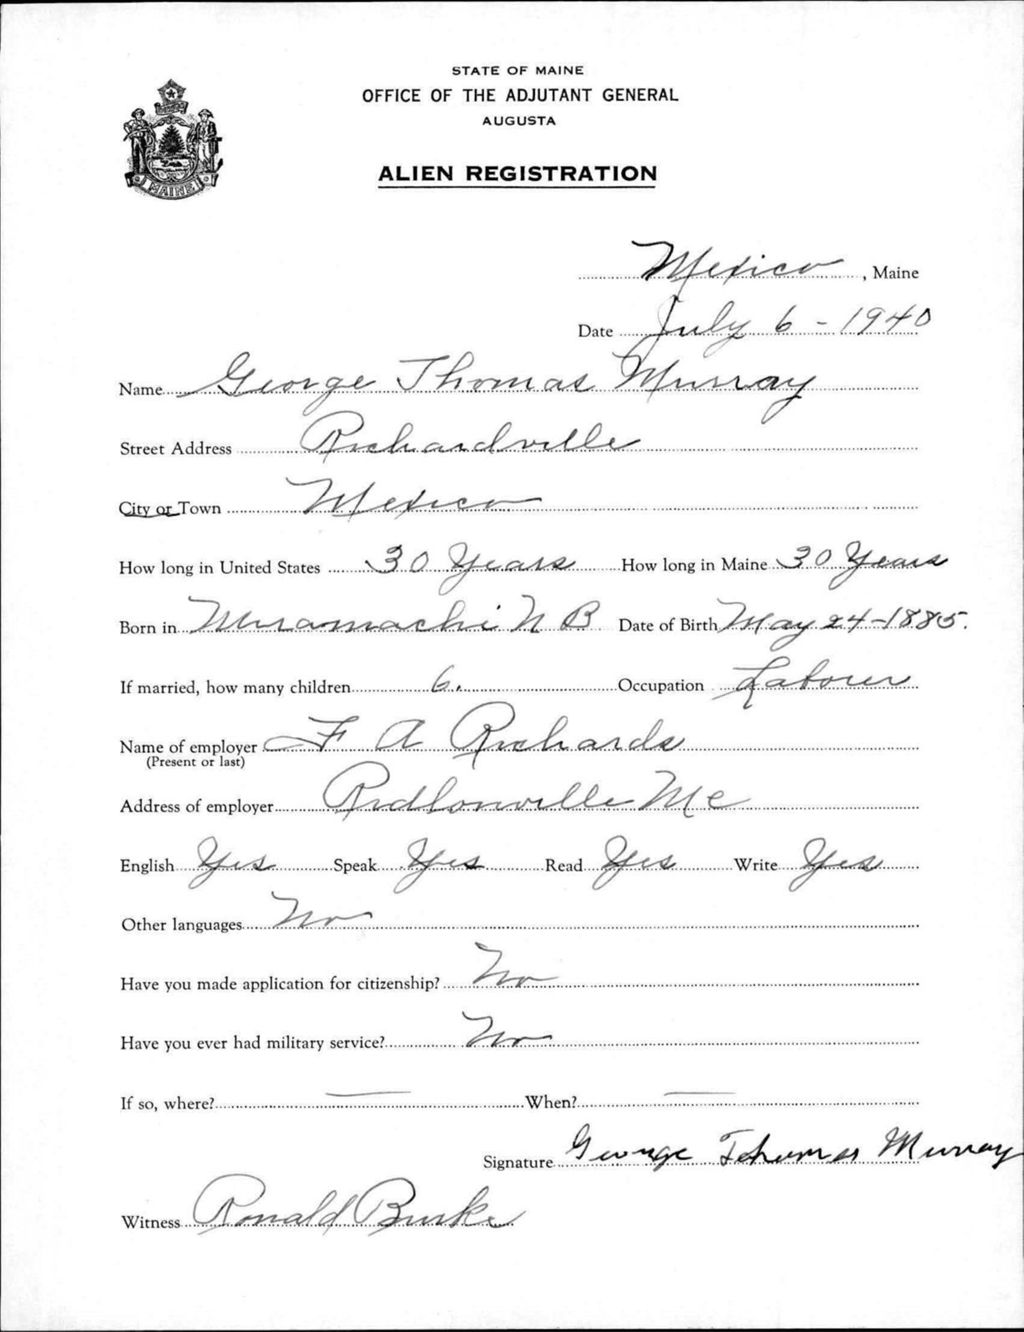 STATE OF MAINE
OFFICE OF THE ADJUTANT GENERAL
AUGUSTA
ALIEN REGISTRATION
MAINE
Mexico, Maine
Date July 6 - 1940
Name George Thomas Murray
Street Address Richardville
City or Town Mexico
How long in United States 30 Years How long in Maine 30 Years
Born in Miramachi N B Date of Birth May 24-1885.
If married, how many children 6. Occupation Laborer
Name of employer F A Richards
(Present or last)
Address of employer Ridlonville Me
English Yes Speak Yes Read Yes Write Yes
Other languages No
Have you made application for citizenship? No
Have you ever had military service? No
If so, where? — When? —
Signature George Thomas Murray
Witness Ronald Burke